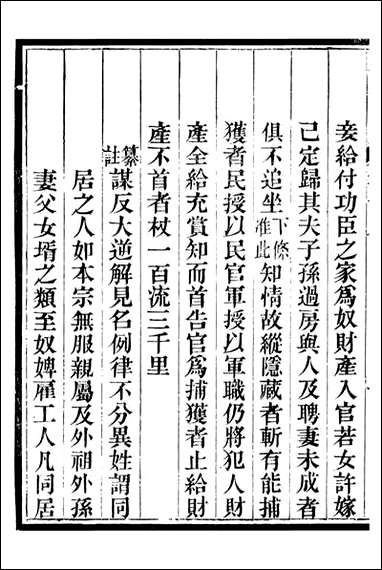 妾給付功臣之家爲奴財產入官若女許嫁
已定歸其夫子孫過房與人及聘妻未成者
俱不追坐下條准此知情故縱隱藏者斬有能捕
獲者民授以民官軍授以軍職仍將犯人財
產全給充賞知而首告官爲捕獲者止給財
產不首者杖一百流三千里
纂註謀反大逆解見名例律不分異姓謂同
居之人如本宗無服親屬及外祖外孫
妻父女壻之類至奴婢雇工人凡同居